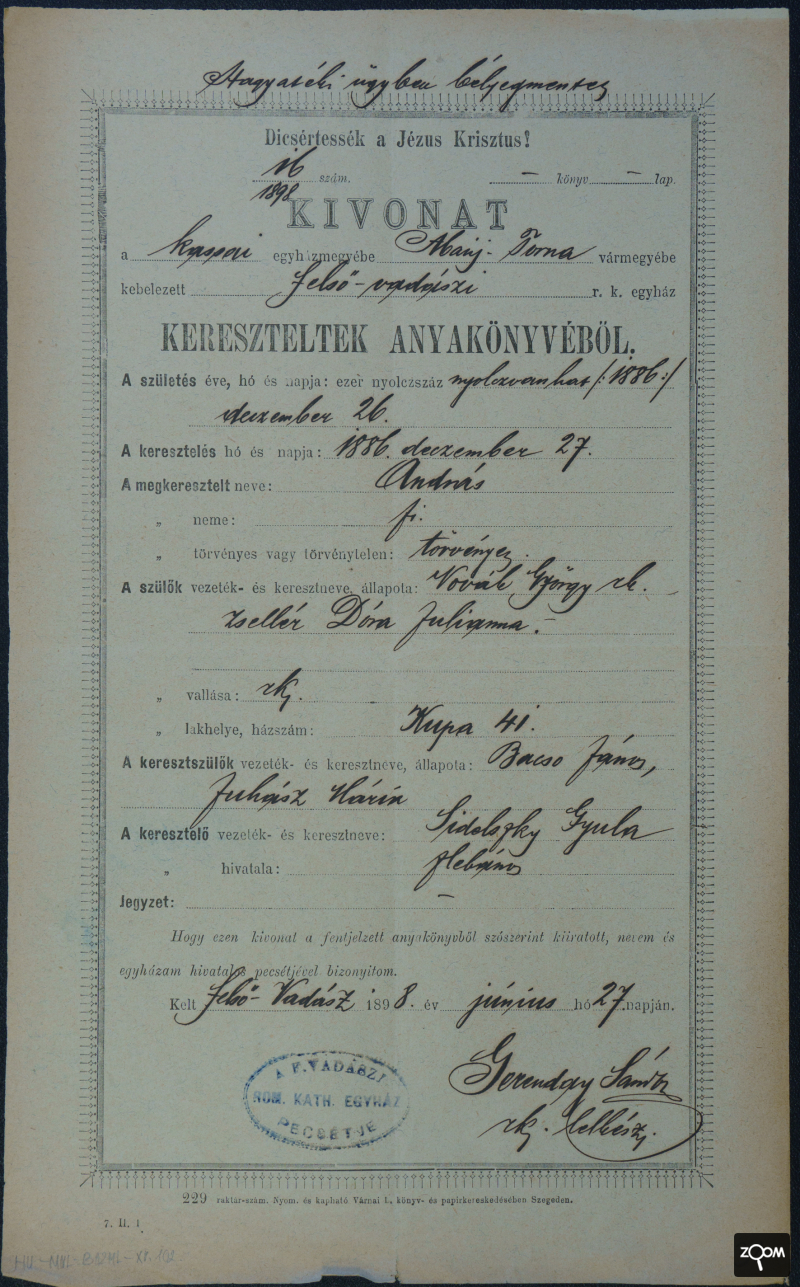 Hagyatéki ügyben bélyegmentes
Dicsértessék a Jézus Krisztus!
16 szám. – könyv – lap.
1898
KIVONAT
a kassai egyházmegyébe Abauj-Torna vármegyébe
kebelezett Felső-vadászi r. k. egyház
KERESZTELTEK ANYAKÖNYVÉBŐL.
A születés éve, hó és napja: ezer nyolczszáz nyolczvanhat /:1886:/
deczember 26.
A keresztelés hó és napja: 1886. deczember 27.
A megkeresztelt neve: András
„ neme: fi.
„ törvényes vagy törvénytelen: törvényes.
A szülők vezeték- és keresztneve, állapota: Novák György rk.
zsellér Dóra Julianna.
„ vallása: rk.
„ lakhelye, házszám: Kupa 41.
A keresztszülők vezeték- és keresztneve, állapota: Bacso János,
Juhász Mária
A keresztelő vezeték- és keresztneve: Sidelszky Gyula
„ hivatala: plebános
Jegyzet: –
Hogy ezen kivonat a fentjelzett anyakönyvből szószerint kiiratott, nevem és
egyházam hivatalos pecsétjével bizonyitom.
Kelt Felső-Vadász 1898. év június hó 27 napján.
A F. VADÁSZI
ROM. KATH. EGYHÁZ
PECSÉTJE
Gerenday Sándor
rk. lelkész.
229 raktár-szám. Nyom. és kapható Várnai L. könyv- és papirkereskedésében Szegeden.
7. II. 1
HU-MNL-BAZML-XI.102
ZOOM